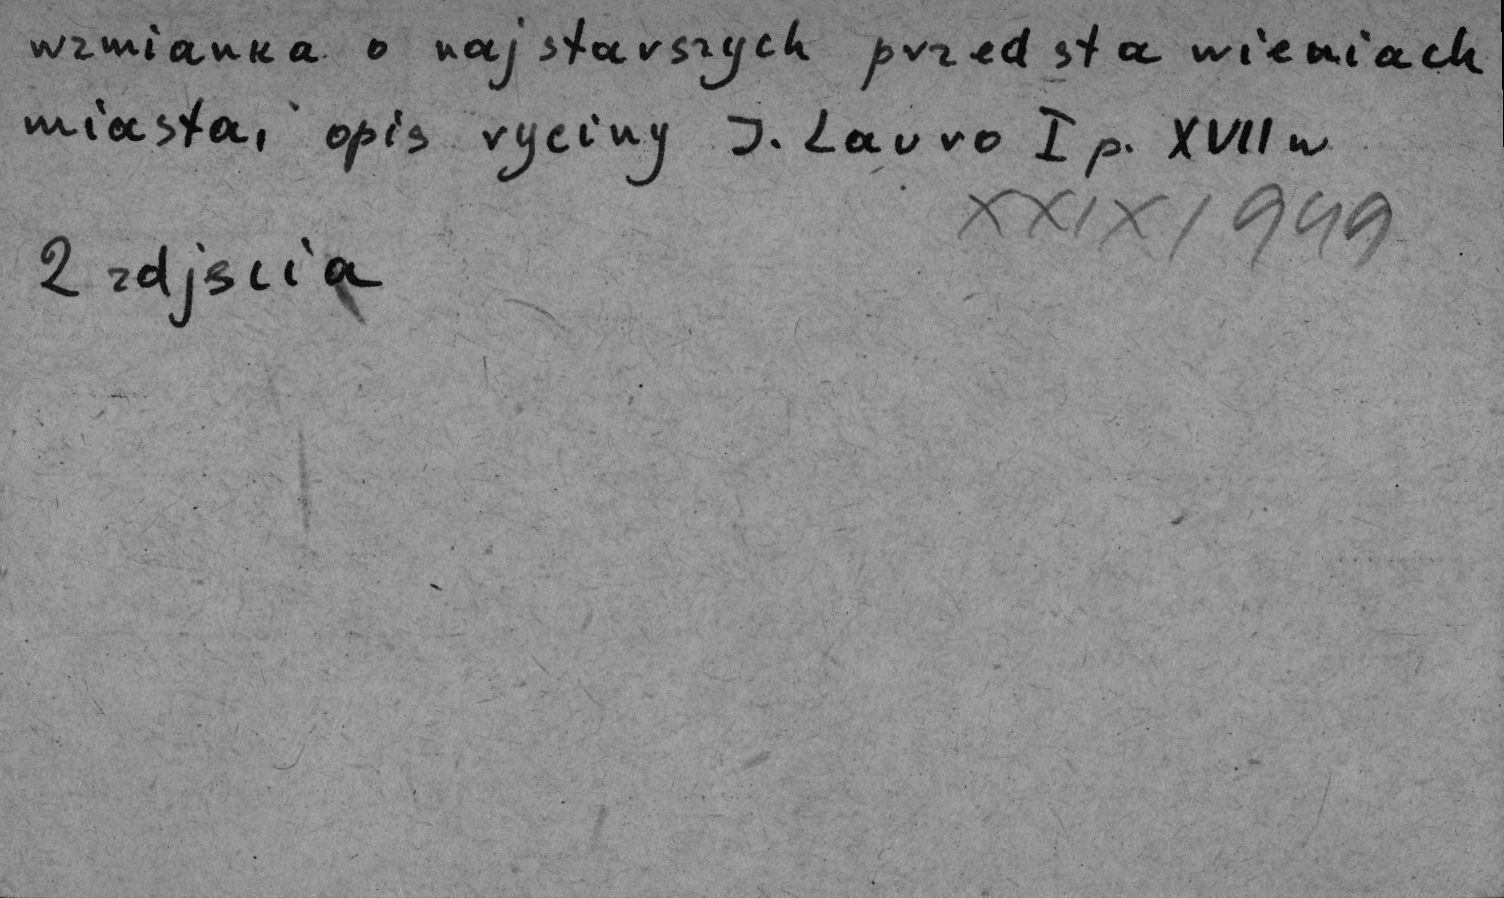 wzmianka o najstarszych przedstawieniach
miasta, opis ryciny J. Lauro I p. XVII w
XXIX/949
2 zdjęcia